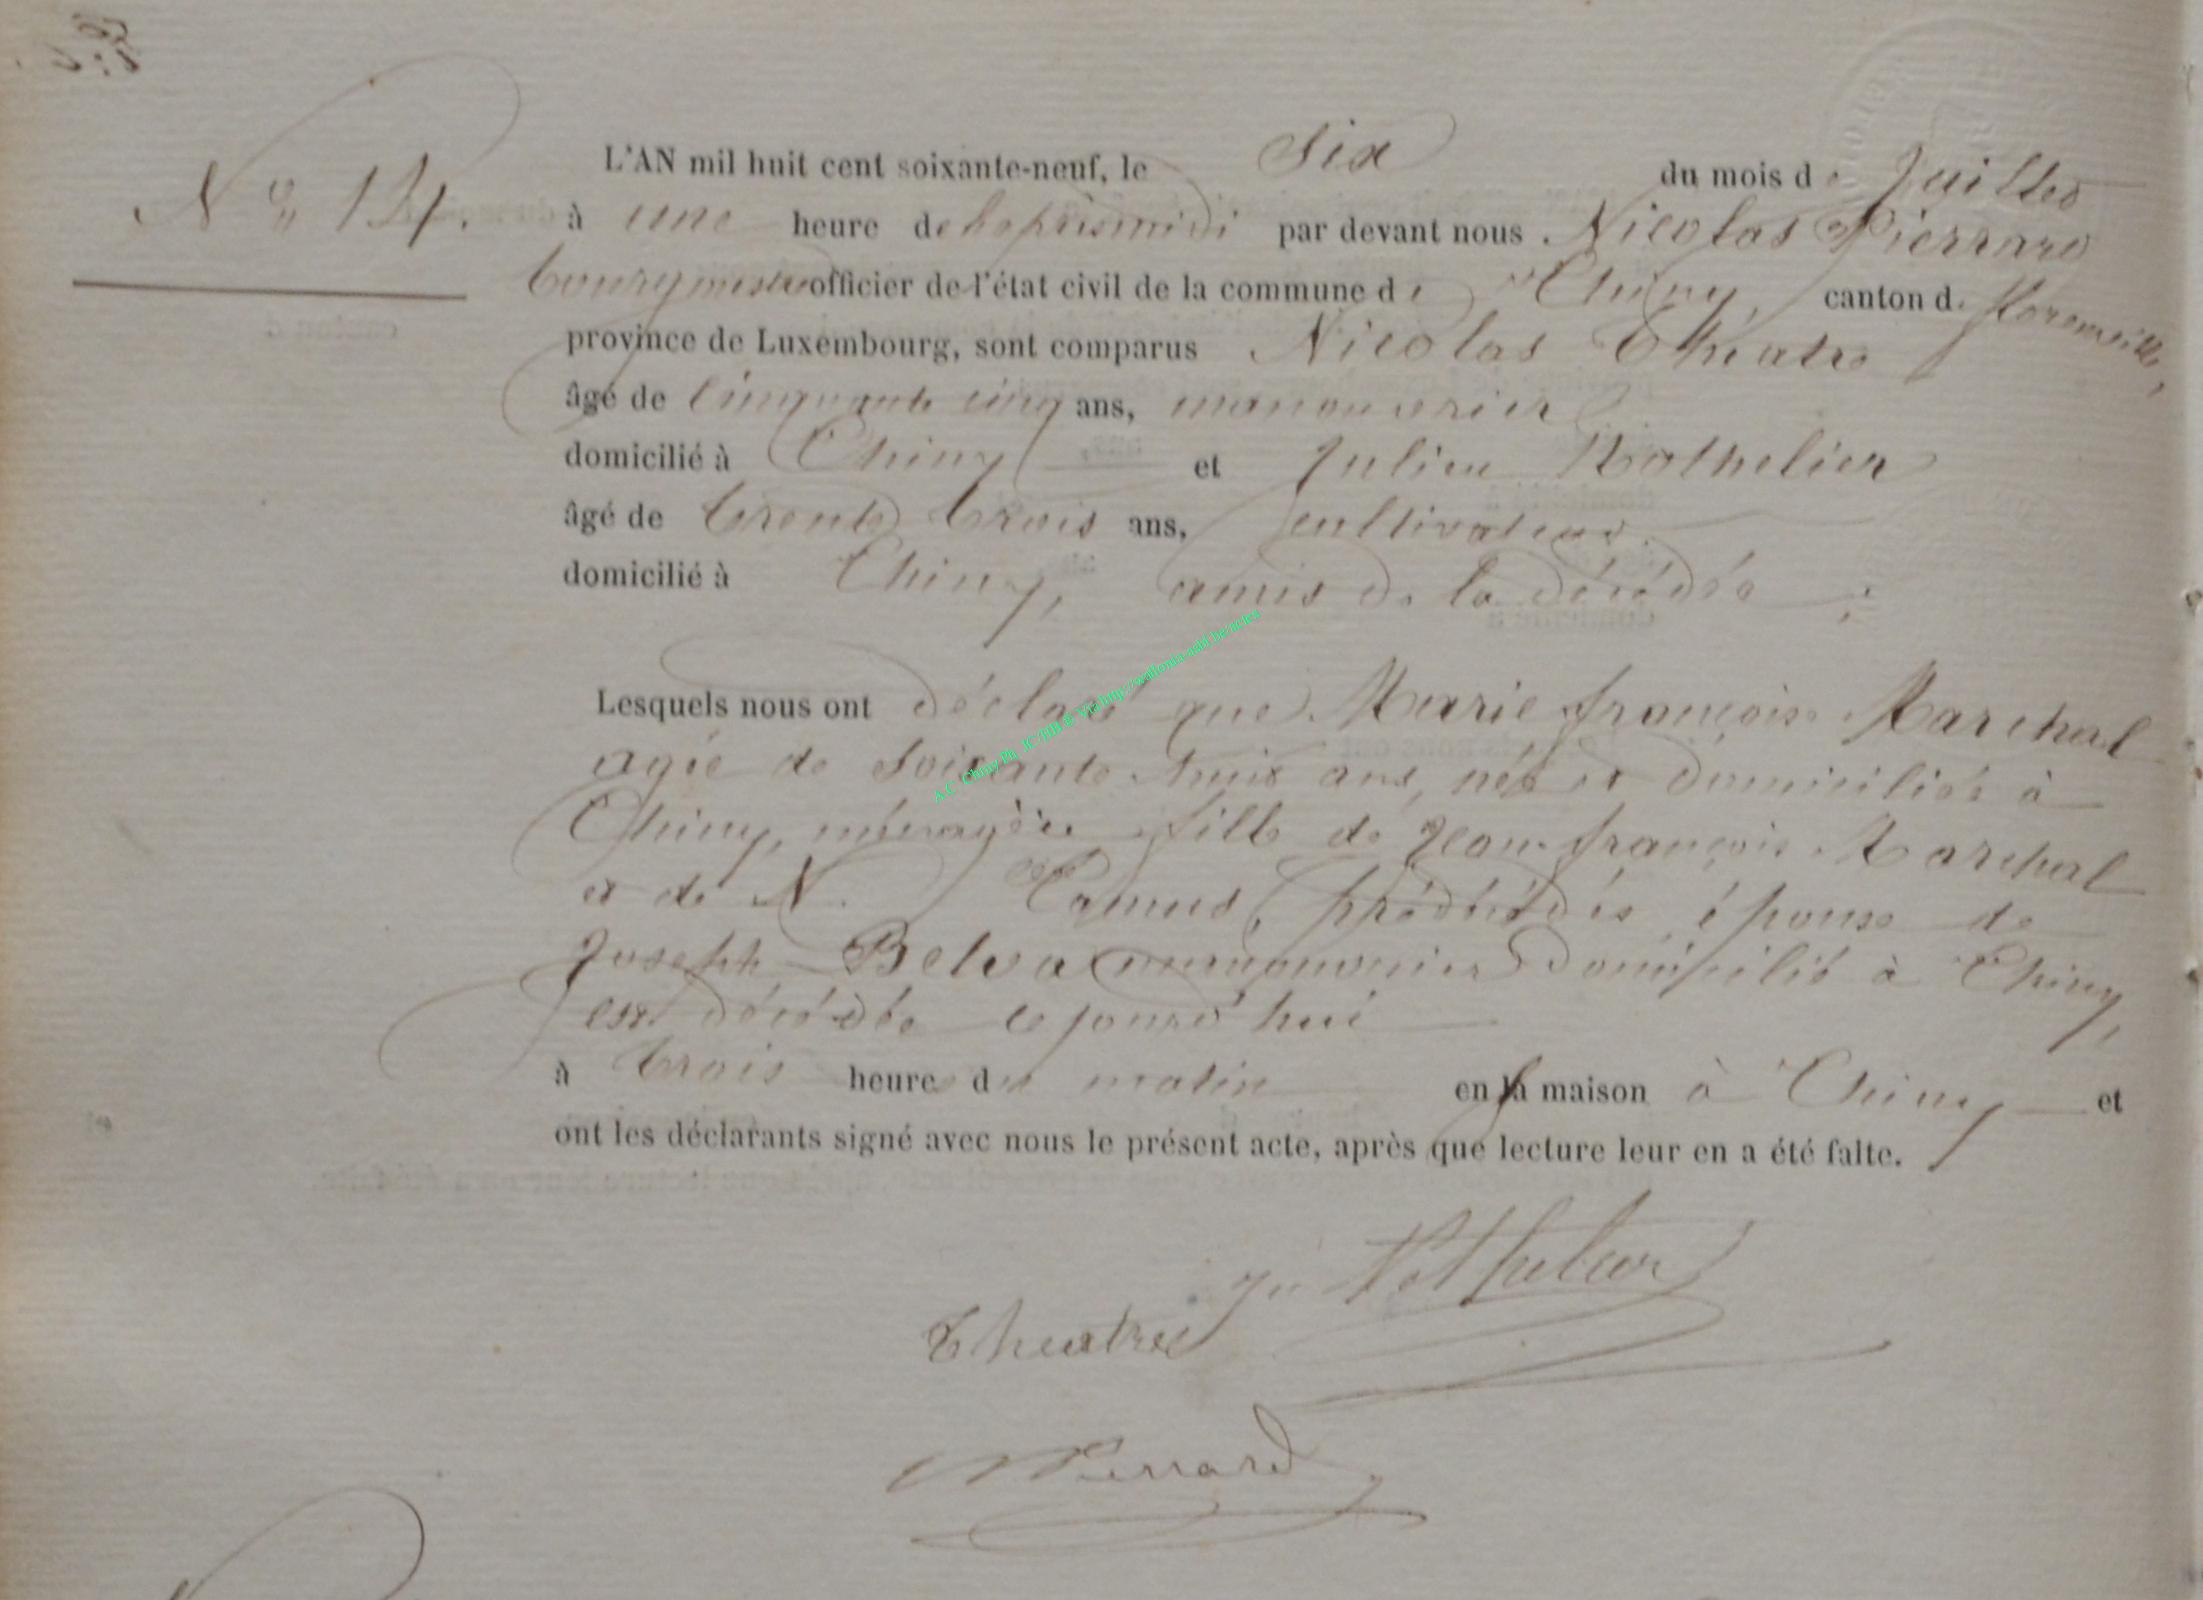 N° 14.
L'AN mil huit cent soixante-neuf, le Six du mois de Juillet
à une heure de laprismidi par devant nous Nicolas Pierrard
bourgmestre officier de l'état civil de la commune de Chiny, canton de Florenville,
province de Luxembourg, sont comparus Nicolas Théatre
âgé de Cinquante cinq ans, manouvrier
domicilié à Chiny et Julien Nothelier
âgé de trente trois ans, cultivateur
domicilié à Chiny, amis de la décédée ;
Lesquels nous ont déclaré que Marie françoise Marchal
agée de Soixante huit ans, née et domiciliée à
Chiny, ménagère fille de Jean françois Marchal
et de N. Camus, prédécédés, épouse de
Joseph Belva manouvrier domicilié à Chiny,
est décédée cejourd'hui
à trois heures du matin en sa maison à Chiny et
ont les déclarants signé avec nous le présent acte, après que lecture leur en a été faite.
Ju Nothelier
Theatre
N Pierrard
A.C. Chiny Ph. JC/HB © Via http://wallonia-asbl.be/actes